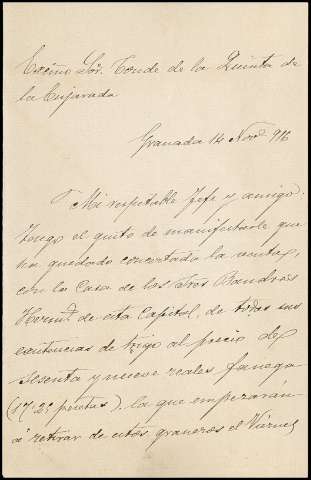 Excmo Sor. Conde de la Quinta de
la Enjarada
Granada 14 Novre 916
Mi respetable Jefe y amigo:
Tengo el gusto de manifestarle que
ha quedado concertada la venta,
con la Casa de los Sres
Hermos de esta Capital, de todas sus
existencias de trigo al precio de
sesenta y nueve reales fanega
(17'25 pesetas). la que empezarán
a' retirar de estos graneros el Viernes